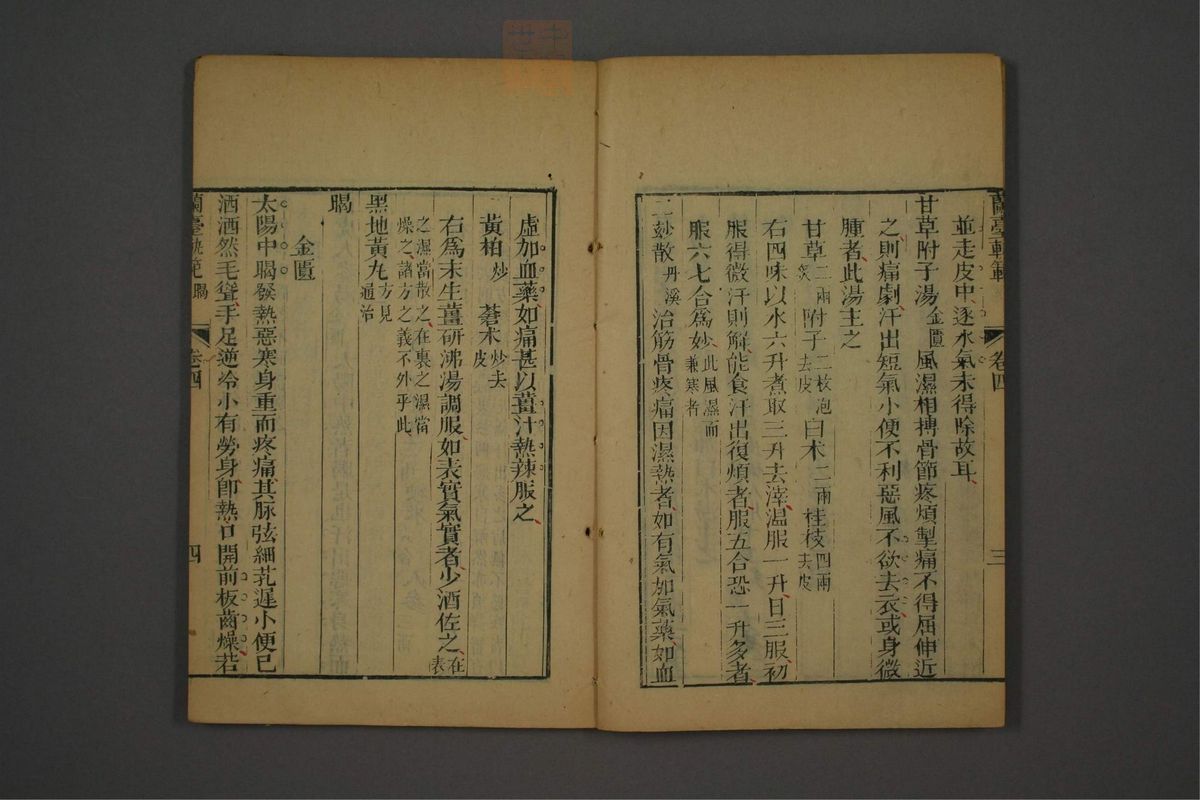 蘭臺軌範
卷四
三
並走皮中逐水氣未得除故耳
甘草附子湯 金匱 風濕相搏骨節疼煩掣痛不得屈伸近
之則痛劇汗出短氣小便不利惡風不欲去衣或身微
腫者此湯主之
甘草 二兩炙 附子 二枚泡去皮 白术 二兩 桂枝 四兩去皮
右四味以水六升煮取三升去滓温服一升日三服初
服得微汗則解能食汗出復煩者服五合恐一升多者
服六七合為妙 此風濕而兼寒者
二妙散 丹溪 治筋骨疼痛因濕熱者如有氣加氣藥如血
虛加血藥如痛甚以薑汁熱辣服之
黃柏 炒 蒼术 炒去皮
右為末生薑研沸湯調服如表實氣實者少酒佐之 在表
之濕當散之在裏之濕當燥之諸方之義不外乎此
黑地黃丸 方見通治
暍
金匱
太陽中暍發熱惡寒身重而疼痛其脉弦細芤遲小便已
洒洒然毛聳手足逆冷小有勞身即熱口開前板齒燥若
蘭臺軌範 暍
卷四
四